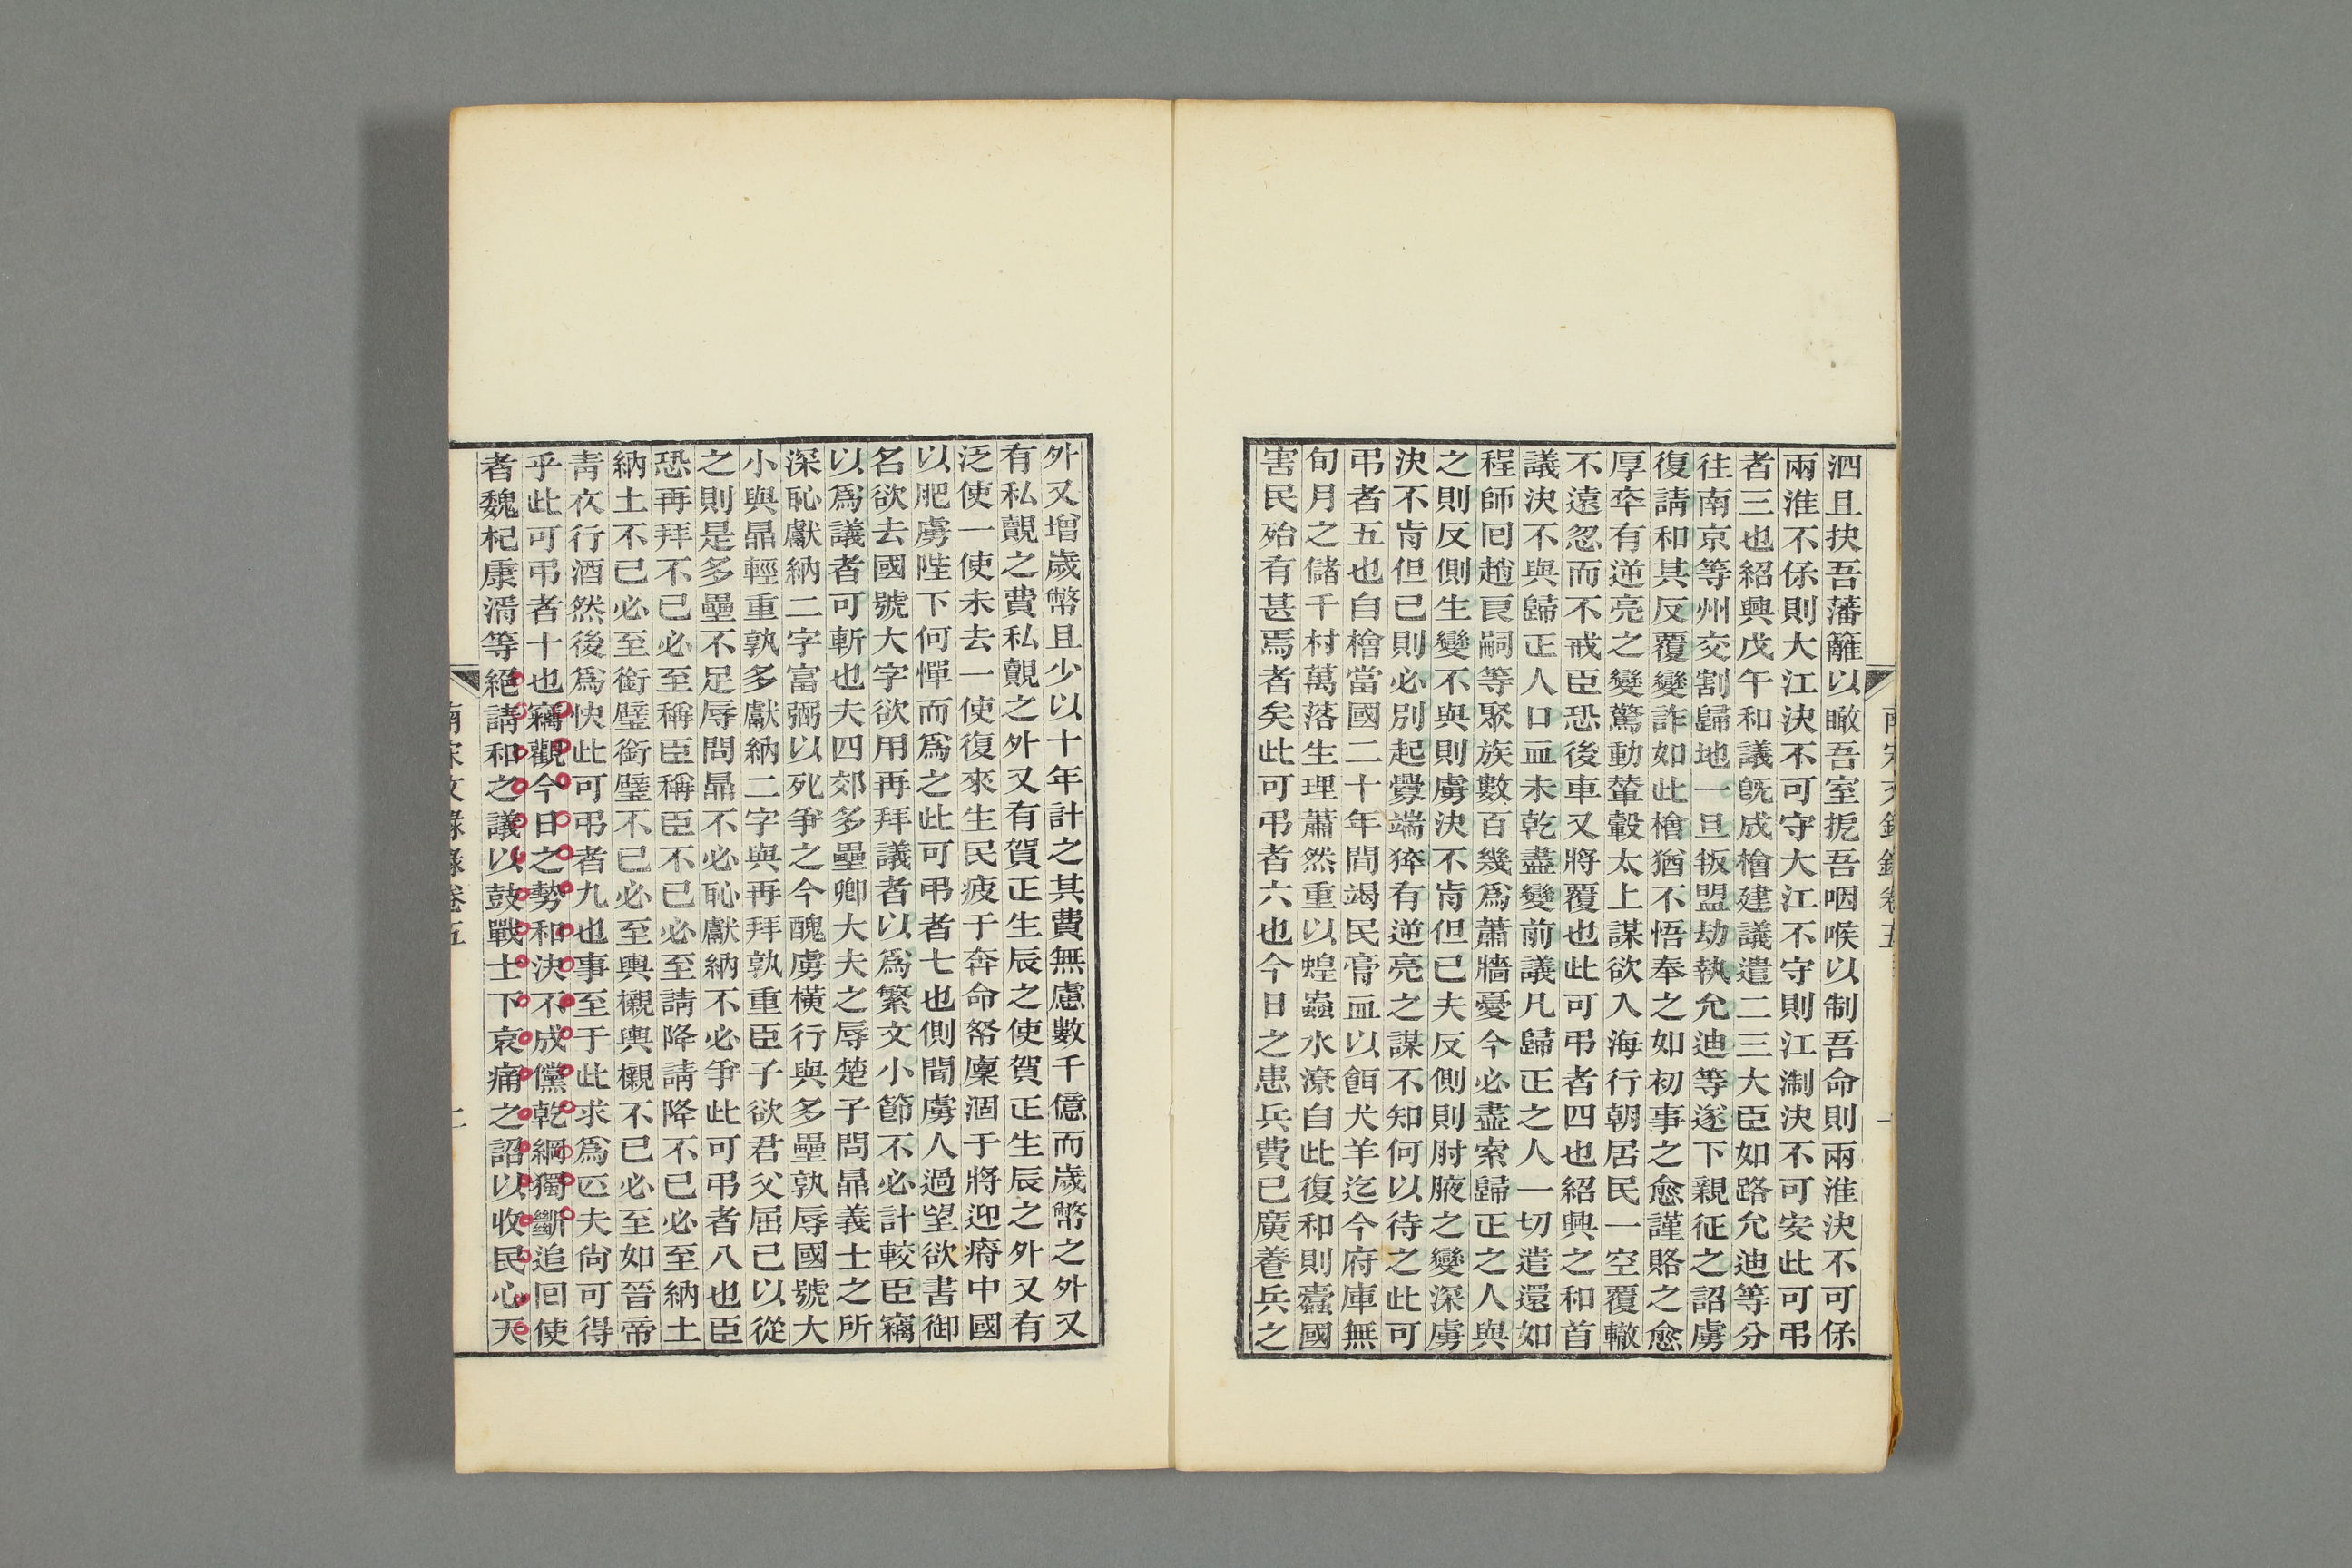 泗且抉吾藩籬以瞰吾室扼吾咽喉以制吾命則兩淮決不可保
兩淮不保則大江決不可守大江不守則江淛決不可安此可弔
者三也紹興戊午和議旣成檜建議遣二三大臣如路允迪等分
往南京等州交割歸地一旦叛盟劫執允迪等遂下親征之詔虜
復請和其反覆變詐如此檜猶不悟奉之如初事之愈謹賂之愈
厚卒有逆亮之變驚動輦轂太上謀欲入海行朝居民一空覆轍
不遠忽而不戒臣恐後車又將覆也此可弔者四也紹興之和首
議決不與歸正人口血未乾盡變前議凡歸正之人一切遣還如
程師回趙良嗣等聚族數百幾爲蕭牆憂今必盡索歸正之人與
之則反側生變不與則虜決不肯但已夫反側則肘腋之變深虜
決不肯但已則必別起釁端猝有逆亮之謀不知何以待之此可
弔者五也自檜當國二十年間竭民膏血以餌犬羊迄今府庫無
旬月之儲千村萬落生理蕭然重以蝗蟲水潦自此復和則蠹國
害民殆有甚焉者矣此可弔者六也今日之患兵費已廣養兵之
外又增歲幣且少以十年計之其費無慮數千億而歲幣之外又
有私覿之費私覿之外又有賀正生辰之使賀正生辰之外又有
泛使一使未去一使復來生民疲于奔命帑廩涸于將迎瘠中國
以肥虜陛下何憚而爲之此可弔者七也側聞虜人過望欲書御
名欲去國號大字欲用再拜議者以爲繁文小節不必計較臣竊
以爲議者可斬也夫四郊多壘卿大夫之辱楚子問鼎義士之所
深恥獻納二字富弼以死爭之今醜虜橫行與多壘孰辱國號大
小與鼎輕重孰多獻納二字與再拜孰重臣子欲君父屈己以從
之則是多壘不足辱問鼎不必恥獻納不必爭此可弔者八也臣
恐再拜不已必至稱臣稱臣不已必至請降請降不已必至納土
納土不已必至銜璧銜璧不已必至輿櫬輿櫬不已必至如晉帝
靑衣行酒然後爲快此可弔者九也事至于此求爲匹夫尙可得
乎此可弔者十也竊觀今日之勢和決不成儻乾綱獨斷追回使
者魏杞康湑等絕請和之議以鼓戰士下哀痛之詔以收民心天
南宋文錄錄卷五